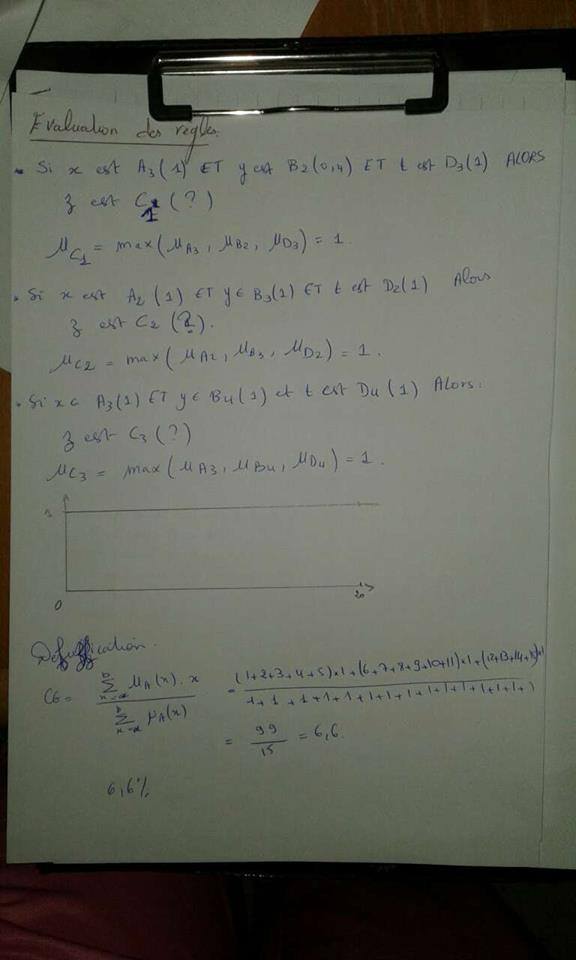 Evaluation des regles.
• Si x est A3(1) ET y est B2(0,4) ET t est D3(1) ALORS
z est C1 (?)
μC1 = max(μA3, μB2, μD3) = 1.
• Si x est A2 (1) ET y ∈ B3(1) ET t est D2(1) Alors
z est C2 (?).
μC2 = max(μA2, μB3, μD2) = 1.
• Si x ∈ A3(1) ET y ∈ B4(1) et t est D4(1) Alors:
z est C3 (?)
μC3 = max(μA3, μB4, μD4) = 1.
1
0 20
CG = Σ μA(x).x / Σ μA(x) = (1+2+3+4+5)x1+(6+7+8+9+10+11)x1+(12+13+14+15)x1 / 1+1+1+1+1+1+1+1+1+1+1+1+1+1+1
= 99/15 = 6,6.
6,6%